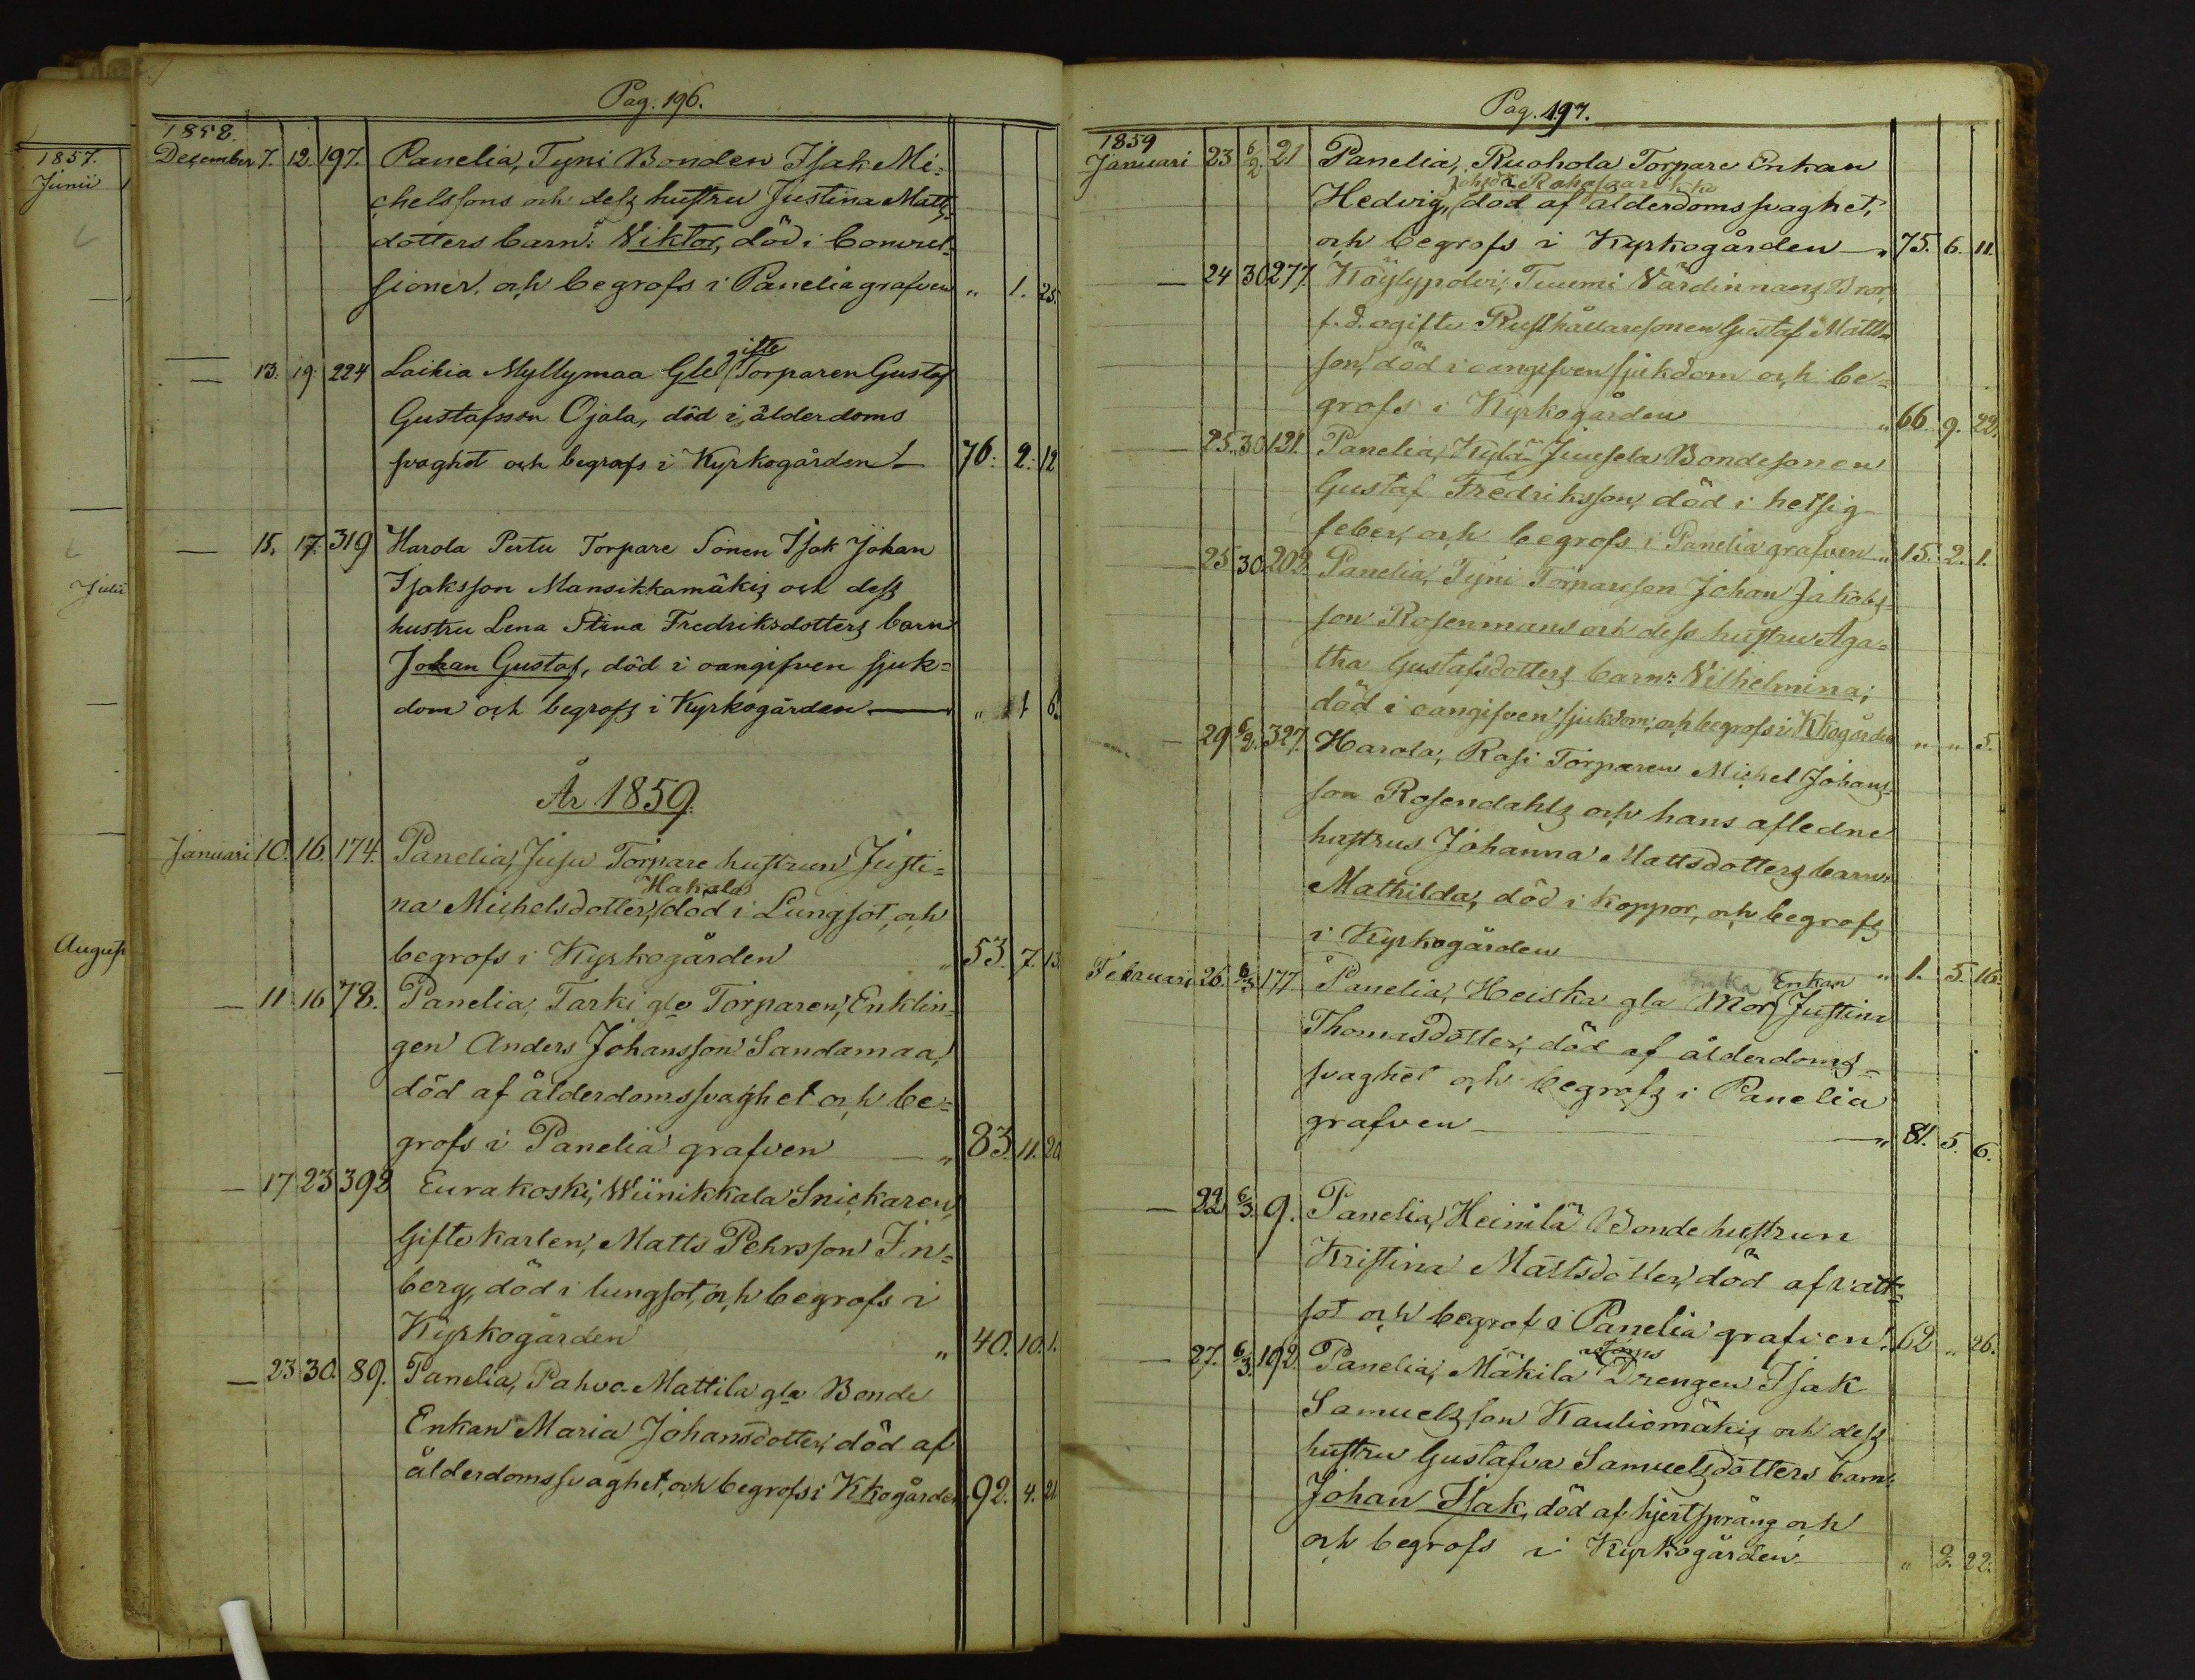 1857.
Junii
Julii
August
Pag. 196.
1858.
December 7. 12. 197. Panelia, Tyni Bonden Isak Mi=
chelssons och dess hustru Justina Matts=
dotters barn: Viktor, död i Convul=
sioner, och begrofs i Paneliagrafven " 1. 25.
— 13. 19. 224 Laihia Myllymaa Gle gifte Torparen Gustaf
Gustafsson Ojala, död i ålderdoms
svaghet och begrofs i Kyrkogården — 76. 2. 12
— 15. 17. 319 Harola Pertu Torpare Sonen Isak Johan
Isaksson Mansikkamäkis och dess
hustru Lena Stina Fredriksdotters barn
Johan Gustaf, död i oangifven sjuk=
dom och begrofs i Kyrkogården — " 1 6.
År 1859.
Januari 10. 16. 174. Panelia, Jusu Torpare hustrun Justi=
Hakala
na Michelsdotter, död i Lungsot, och
begrofs i Kyrkogården " 53. 7. 13.
— 11 16 78. Panelia, Tarki gle Torparen, Enklin=
gen Anders Johansson Sandamaa,
död af ålderdomssvaghet och be=
grofs i Panelia grafven — " 83. 11. 20.
— 17 23 392 Eurakoski, Wiinikkala Snickaren,
Gifte karlen, Matts Pehrsson Fin=
berg, död i lungsot, och begrofs i
Kyrkogården " 40. 10. 1.
— 23 30. 89. Panelia, Pahva-Mattila gla Bonde
Enkan Maria Johansdotter, död af
ålderdomssvaghet, och begrofs i Kkogården 92. 4. 21
Pag. 197.
1859
Januari 23 6/2. 21 Panelia, Ruohola Torpare Enkan
Johsdr
Hedvig, död af ålderdomssvaghet,
och begrofs i Kyrkogården — " 75. 6. 11.
— 24 30 277. Köylypolvi, Tuumi Värdinnans Bror,
f. d. ogifte Rusthållaresonen Gustaf Matts=
son, död i oangifven sjukdom och be=
grofs i Kyrkogården " 66 9. 22.
— 25. 30 121. Panelia, Kylä-Juusela Bondesonen
Gustaf Fredriksson, död i hetsig
feber, och begrofs i Panelia grafven " 15. 2. 1.
— 25 30. 202. Panelia, Tyni Torpareson Johan Jakobs=
son Rosenmans och dess hustru Aga=
tha Gustafsdotters barn: Vilhelmina;
död i oangifven sjukdom, och begrofs i Kkogården " " 5.
— 29 6/2. 327. Harola, Rasi Torparen Michel Johans=
son Rosendahls och hans afledne
hustrus Johanna Mattsdotters barn:
Mathilda, död i koppor, och begrofs
i Kyrkogården " 1. 5. 16.
Februari 26. 6/3 177 Panelia, Heiska gla Mor Enkan Justina
Thomasdotter, död af ålderdoms=
svaghet och begrofs i Panelia
grafven — " 81. 5. 6.
— 22 6/3. 9. Panelia, Heinilä Bondehustrun
Kristina Mattsdotter, död af vatt=
sot och begrof i Panelia grafven. 62 " 26.
— 27. 6/3. 192. Panelia, Mäkilä Drengen Isak
Samuelsson Kauliomäkis och dess
hustru Gustafva Samuelsdotters barn:
Johan Isak, död af hjertsprång och
och begrofs i Kyrkogården " 2. 22.